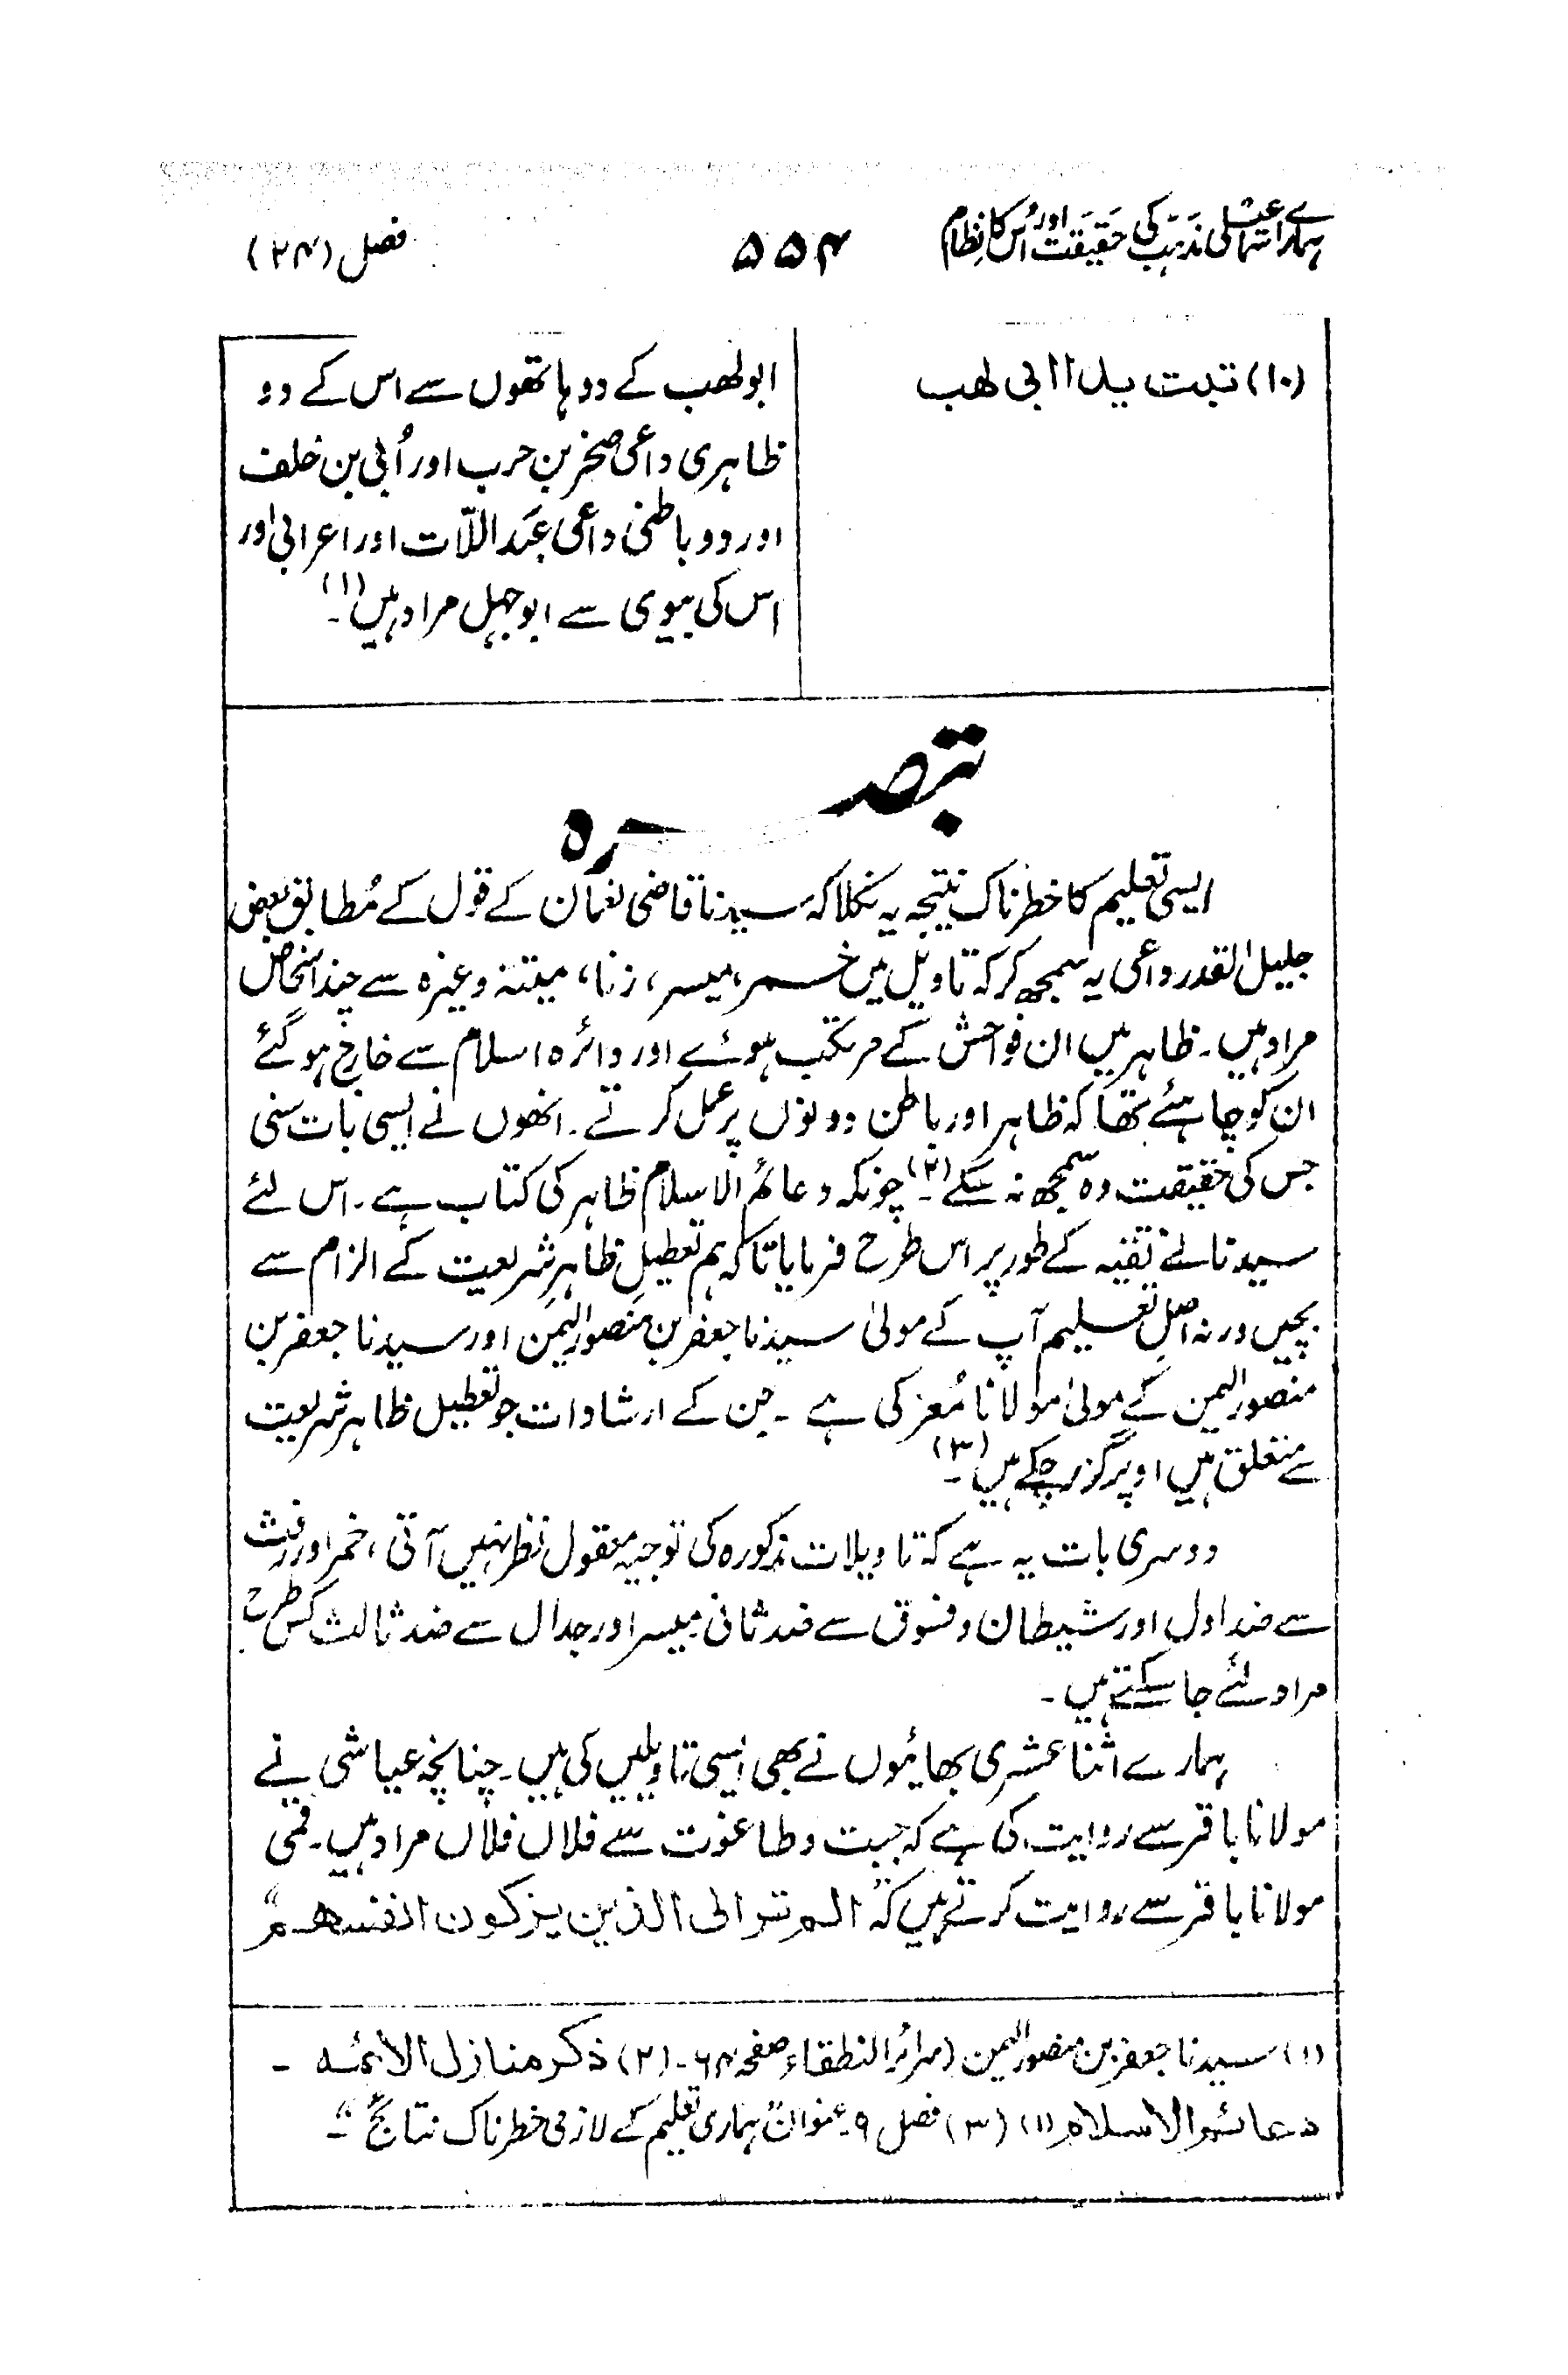 ہمارے اسماعیلی مذہب کی حقیقت اور اُس کا نظام
۵۵۴
فصل (۲۴)
(۱۰) تبت یدا ابی لھب
ابو لھب کے دو ہاتھوں سے اس کے دو
ظاہری داعی صخر بن حرب اور اُبی بن خلف
اور دو باطنی داعی عبد اللّات اور اعرابی اور
اس کی بیوی سے ابو جہل مراد ہیں (۱)۔
تبصرہ
ایسی تعلیم کا خطرناک نتیجہ یہ نکلا کہ سیدنا قاضی نعمان کے قول کے مُطابق بعض
جلیل القدر داعی یہ سمجھ کر کہ تاویل میں خمر، میسر، زنا، میتتہ وغیرہ سے چند اشخاص
مراد ہیں۔ ظاہر میں ان فواحش کے مرتکب ہوئے اور دائرہ اسلام سے خارج ہو گئے
ان کو چاہئے تھا کہ ظاہر اور باطن دونوں پر عمل کرتے۔ انھوں نے ایسی بات سنی
جس کی حقیقت وہ سمجھ نہ سکے (۲)۔ چونکہ دعائم الاسلام ظاہر کی کتاب ہے۔ اس لئے
سیدنا نے تقیہ کے طور پر اس طرح فرمایا تاکہ ہم تعطیلِ ظاہرِ شریعت کے الزام سے
بچیں ورنہ اصل تعلیم آپ کے مولیٰ سیدنا جعفر بن منصور الیمن اور سیدنا جعفر بن
منصور الیمن کے مولیٰ مولانا مُعز کی ہے ۔ جن کے ارشادات جو تعطیل ظاہر شریعت
سے متعلق ہیں اوپر گزر چکے ہیں (۳)۔
دوسری بات یہ ہے کہ تاویلات مذکورہ کی توجیہ معقول نظر نہیں آتی، خمر اور رفث
سے ضد اول اور شیطان و فسوق سے ضد ثانی میسر اور جدال سے ضد ثالث کس طرح
مراد لئے جا سکتے ہیں ۔
ہمارے اثنا عشری بھائیوں نے بھی ایسی تاویلیں کی ہیں۔ چنانچہ عیاشی نے
مولانا باقر سے روایت کی ہے کہ جبت و طاغوت سے فلاں فلاں مراد ہیں۔ قمی
مولانا باقر سے روایت کرتے ہیں کہ "الم تر الی الذین یزکون انفسھم"
(۱) سیدنا جعفر بن منصور الیمن (سرائر النطقاء صفحہ ۶۴ ۔ (۲) ذکر منازل الائمہ ۔
دعائم الاسلام (۱) (۳) فصل ۹ عنوان "ہماری تعلیم کے لازمی خطرناک نتائج" ۔